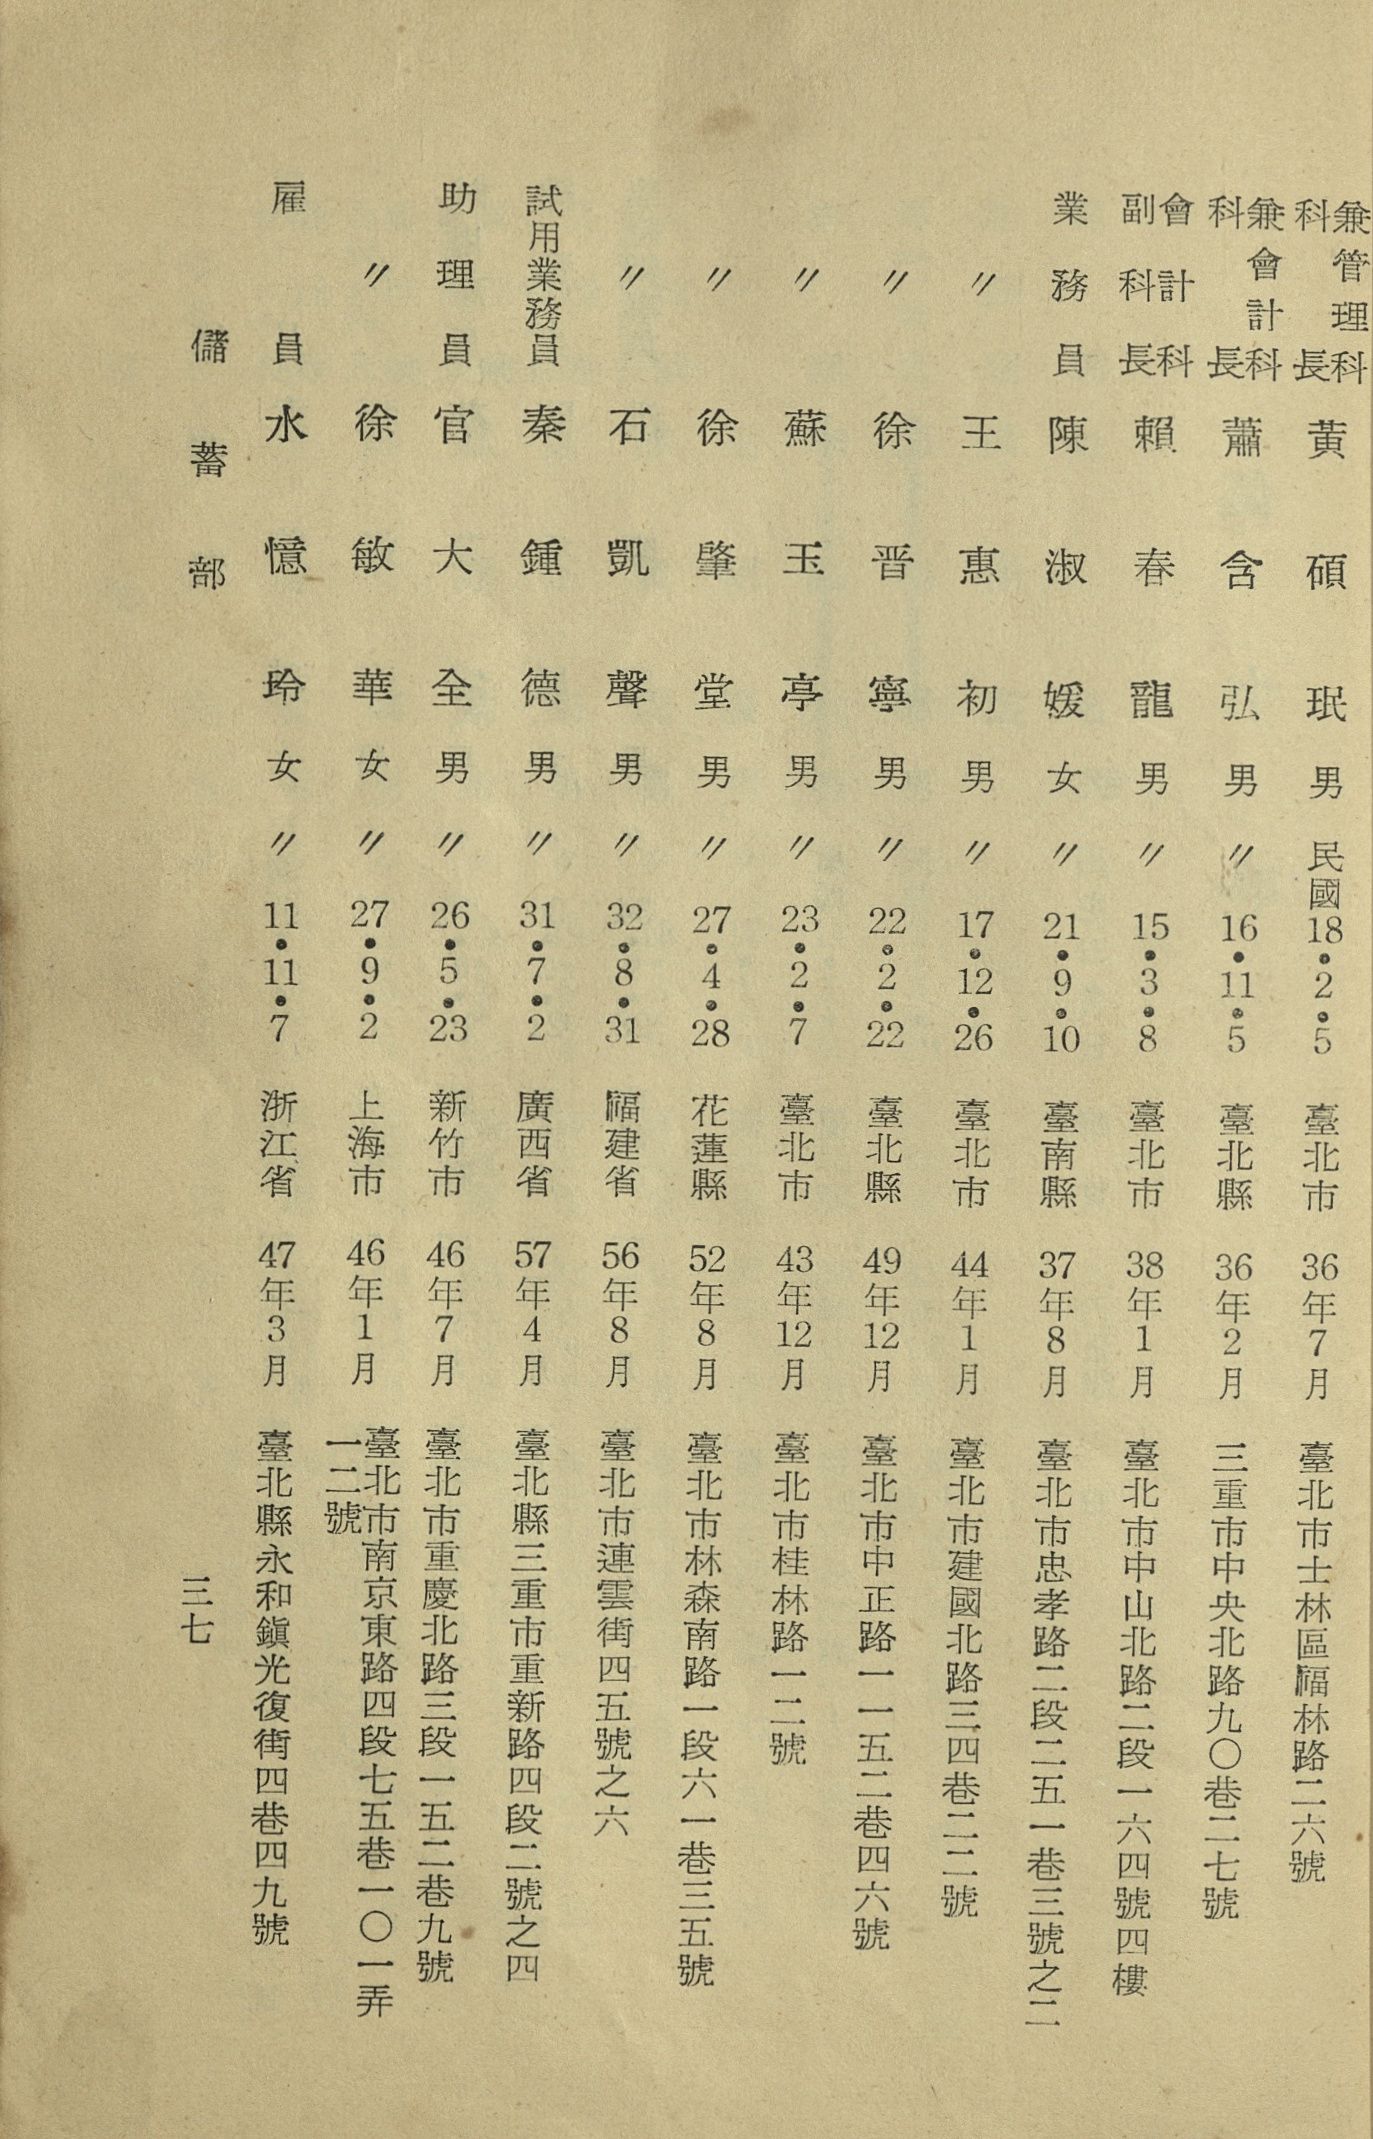 兼管理科科長 黃碩珉 男 民國18•2•5 臺北市 36年7月 臺北市士林區福林路二六號
兼會計科科長 蕭含弘 男 〃 16•11•5 臺北縣 36年2月 三重市中央北路九〇巷二七號
會計科副科長 賴春龍 男 〃 15•3•8 臺北市 38年1月 臺北市中山北路二段一六四號四樓
業務員 陳淑媛 女 〃 21•9•10 臺南縣 37年8月 臺北市忠孝路二段二五一巷三號之二
〃 王惠初 男 〃 17•12•26 臺北市 44年1月 臺北市建國北路三四巷二二號
〃 徐晋寧 男 〃 22•2•22 臺北縣 49年12月 臺北市中正路一一五二巷四六號
〃 蘇玉亭 男 〃 23•2•7 臺北市 43年12月 臺北市桂林路一二號
〃 徐肇堂 男 〃 27•4•28 花蓮縣 52年8月 臺北市林森南路一段六一巷三五號
〃 石凱聲 男 〃 32•8•31 福建省 56年8月 臺北市連雲街四五號之六
試用業務員 秦鍾德 男 〃 31•7•2 廣西省 57年4月 臺北縣三重市重新路四段二號之四
助理員 官大全 男 〃 26•5•23 新竹市 46年7月 臺北市重慶北路三段一五二巷九號
〃 徐敏華 女 〃 27•9•2 上海市 46年1月 臺北市南京東路四段七五巷一〇一弄
一二號
雇員 水憶玲 女 〃 11•11•7 浙江省 47年3月 臺北縣永和鎭光復街四巷四九號
儲蓄部
三七